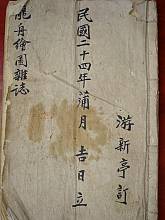 民國二十四年蒲月 吉日立
游新亭訂
龍舟繪圖雜誌